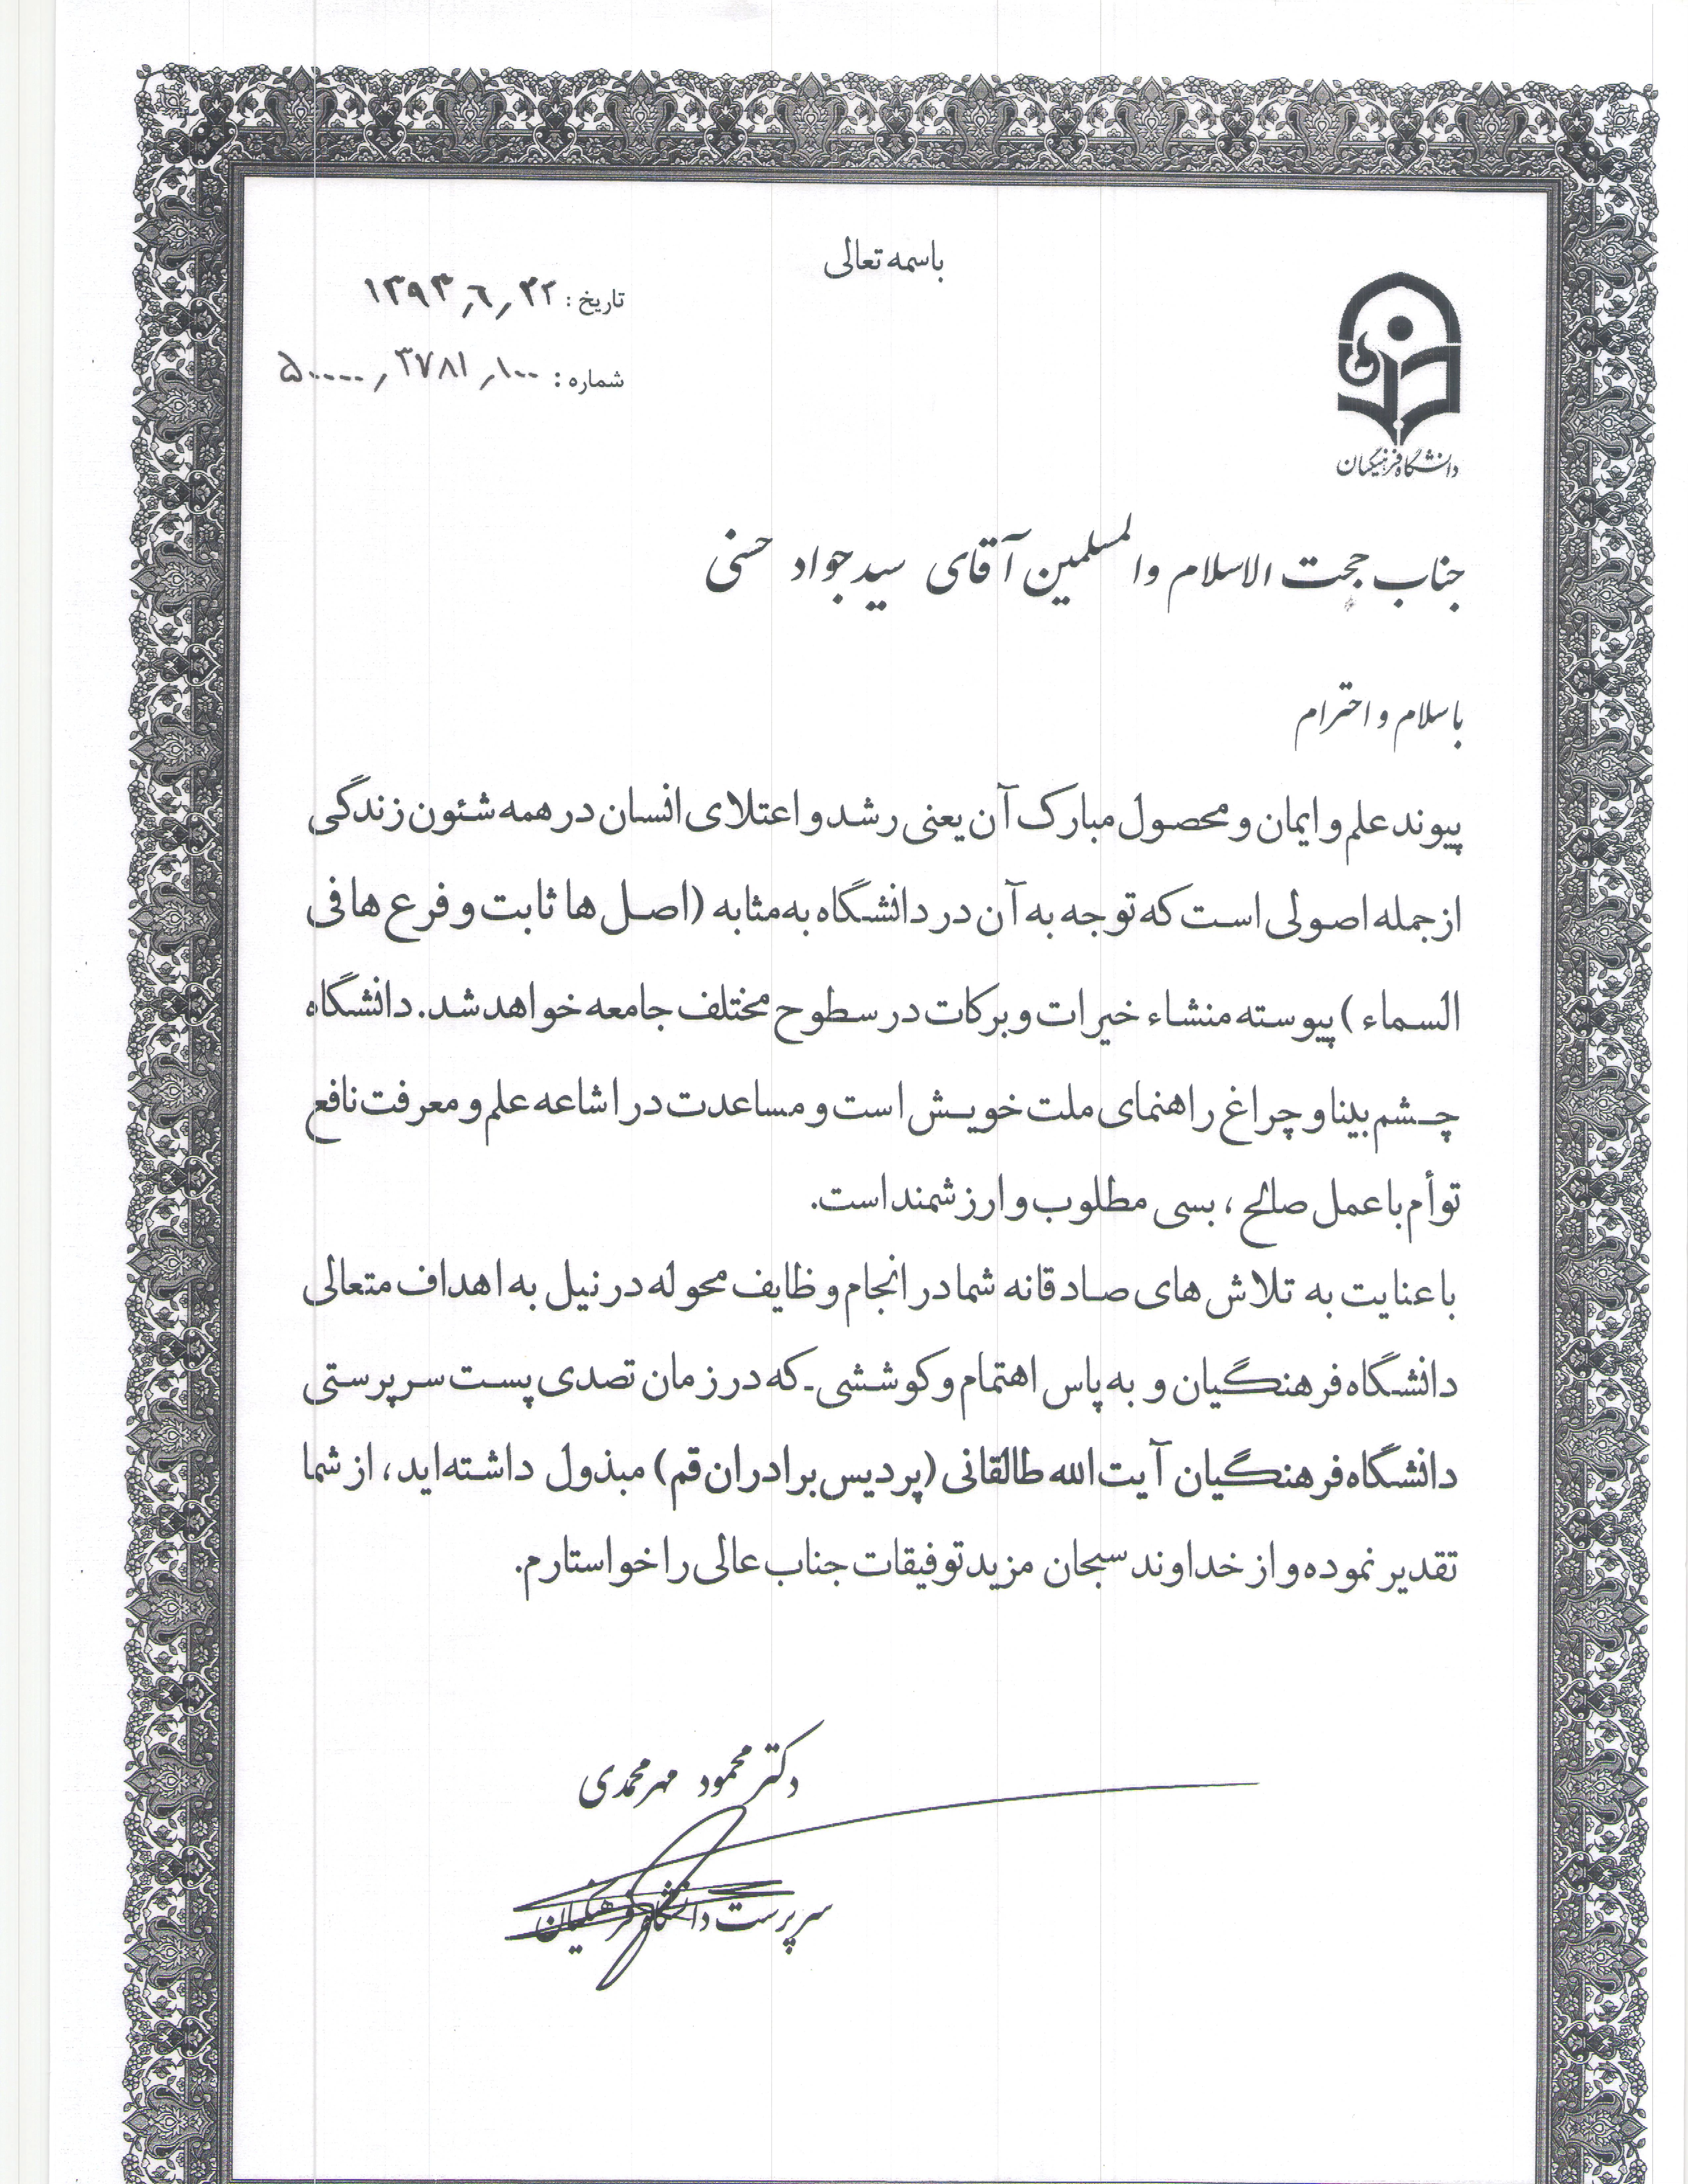 باسمه تعالی
تاریخ : ۱۳۹۳٫۶٫۲۲
شماره : ۵۰۰۰۰٫۳۷۸۱٫۱۰۰
دانشگاه فرهنگیان
جناب حجت الاسلام والمسلمین آقای سید جواد حسنی
باسلام و احترام
پیوند علم و ایمان و محصول مبارک آن یعنی رشد و اعتلای انسان در همه شئون زندگی
از جمله اصولی است که توجه به آن در دانشگاه به مثابه (اصل ها ثابت و فرع ها فی
السماء) پیوسته منشاء خیرات و برکات در سطوح مختلف جامعه خواهد شد. دانشگاه
چشم بینا و چراغ راهنمای ملت خویش است و مساعدت در اشاعه علم و معرفت نافع
توأم با عمل صالح ، بسی مطلوب و ارزشمند است.
با عنایت به تلاش های صادقانه شما در انجام وظایف محوله در نیل به اهداف متعالی
دانشگاه فرهنگیان و به پاس اهتمام و کوششی-که در زمان تصدی پست سرپرستی
دانشگاه فرهنگیان آیت الله طالقانی (پردیس برادران قم) مبذول داشته‌اید، از شما
تقدیر نموده و از خداوند سبحان مزید توفیقات جناب عالی را خواستارم.
دکتر محمود مهرمحمدی
سرپرست دانشگاه فرهنگیان